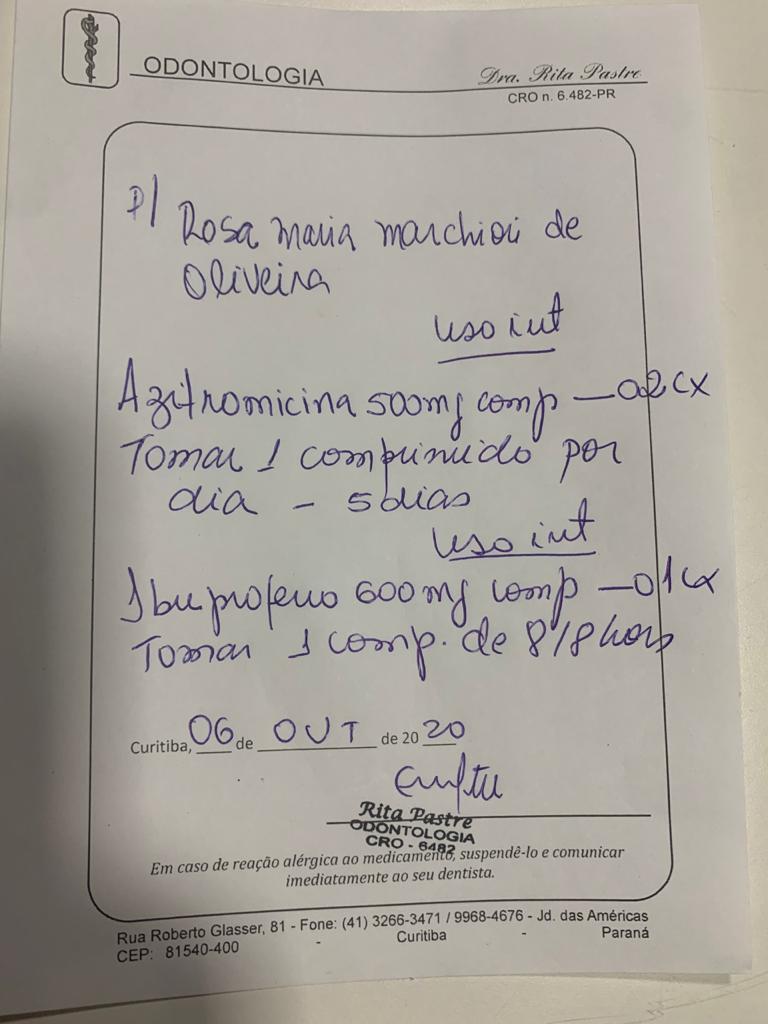 ODONTOLOGIA
Dra. Rita Pastre
CRO n. 6.482-PR
P/ Rosa Maria Marchiori de
Oliveira
uso int
Azitromicina 500mg comp — 02 cx
Tomar 1 comprimido por
dia - 5 dias
uso int
Ibuprofeno 600mg comp — 01 cx
Tomar 1 comp. de 8/8 horas
Curitiba, 06 de OUT de 2020
Rita Pastre
ODONTOLOGIA
CRO - 6482
Em caso de reação alérgica ao medicamento, suspendê-lo e comunicar
imediatamente ao seu dentista.
Rua Roberto Glasser, 81 - Fone: (41) 3266-3471 / 9968-4676 - Jd. das Américas
CEP: 81540-400 - Curitiba - Paraná